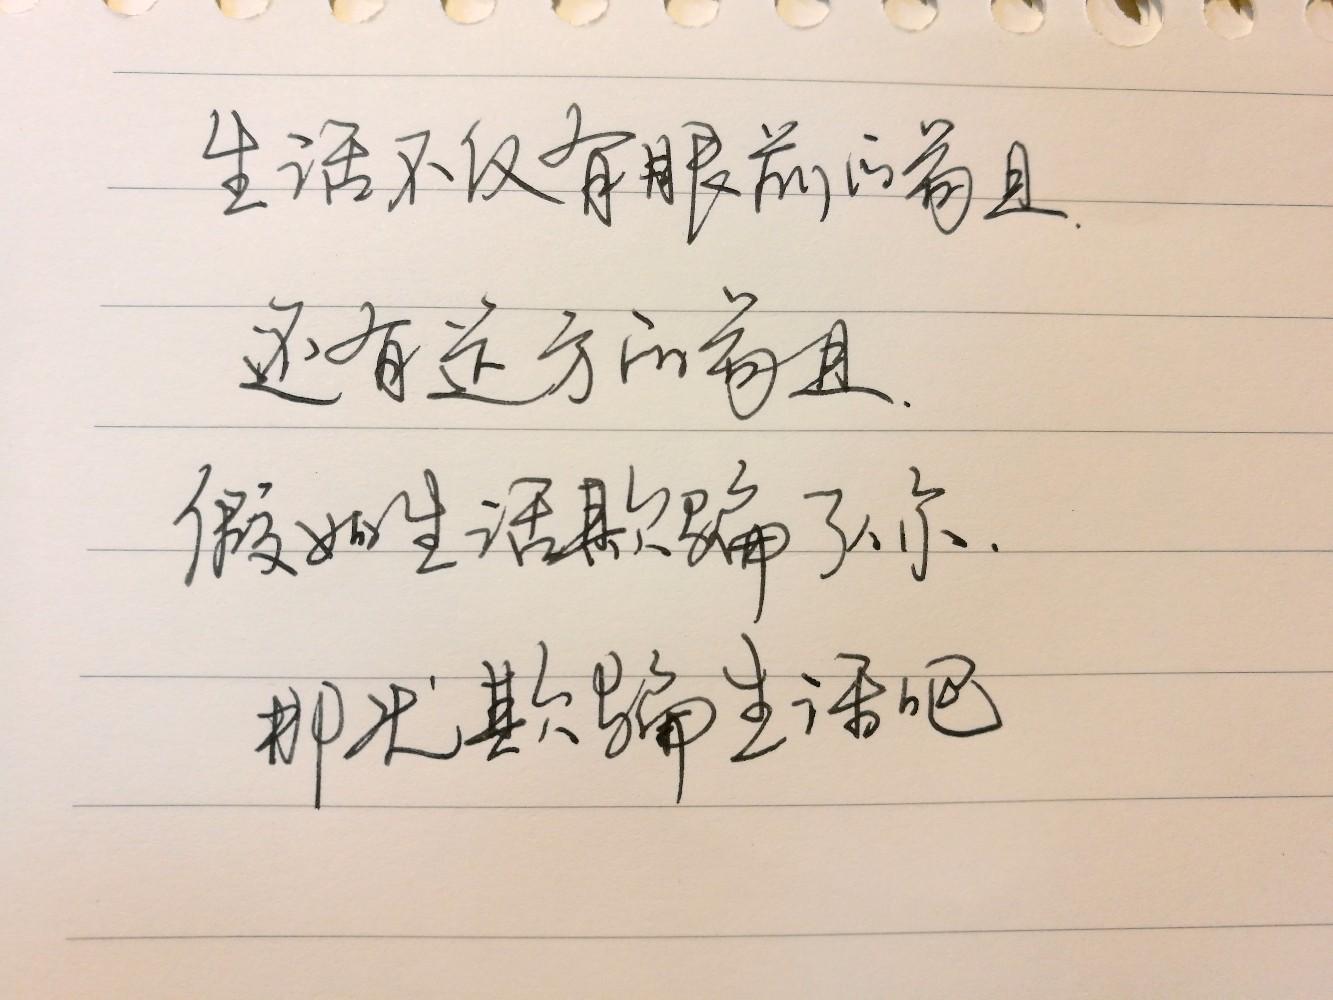 生活不仅有眼前的苟且.
还有远方的苟且.
假如生活欺骗了你.
那就欺骗生活吧